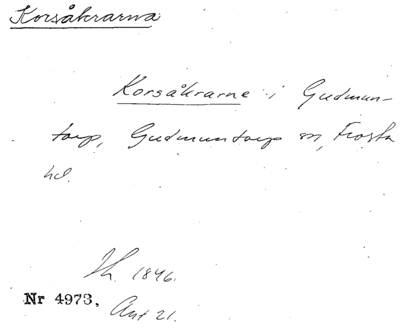 Korsåkrarna
Korsåkrarne i Gudmun-
torp, Gudmuntorp sn, Frosta
hd.
Sk. 1846.
Nr 4973, Akt 21.